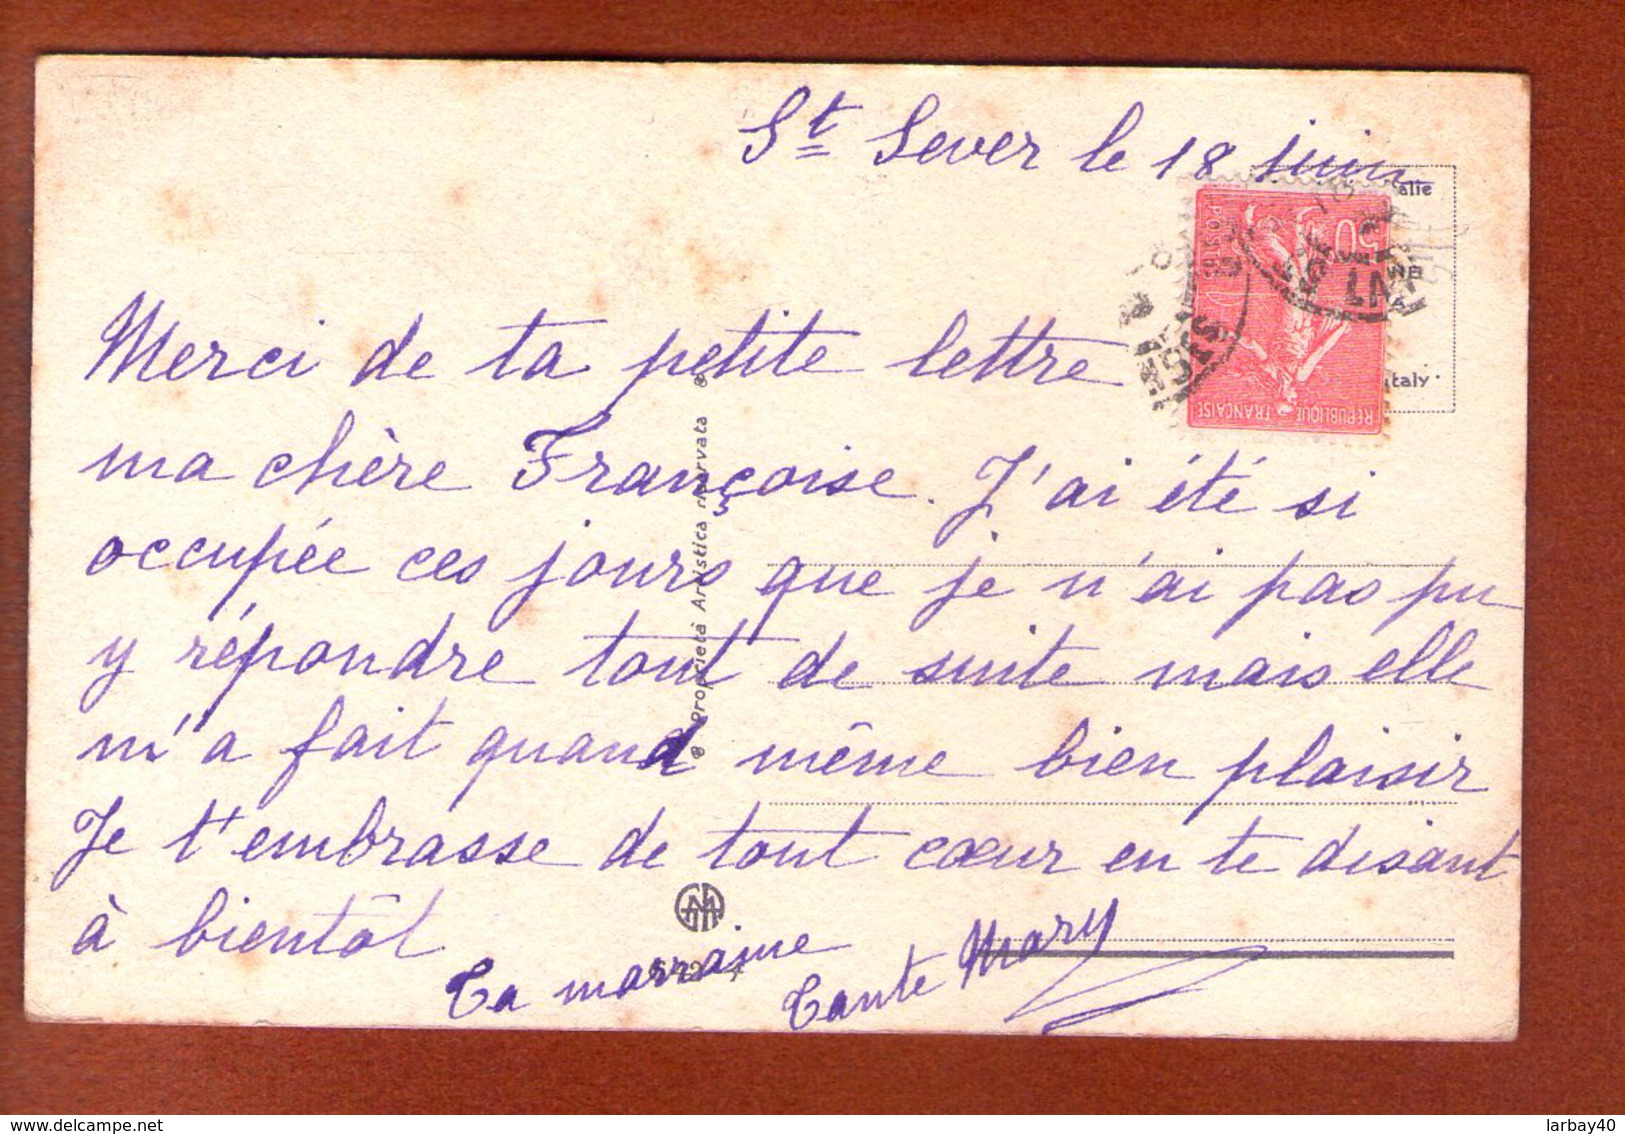 St Sever le 18 juin
alie
50
POSTES
RÉPUBLIQUE FRANÇAISE
taly
Merci de ta petite lettre
ma chère Françoise. J'ai été si
occupée ces jours que je n'ai pas pu
y répondre tout de suite mais elle
m'a fait quand même bien plaisir
Je t'embrasse de tout cœur en te disant
à bientôt
Ta marraine
Tante Mary
Proprietà Artistica riservata
delcampe.net
larbay40